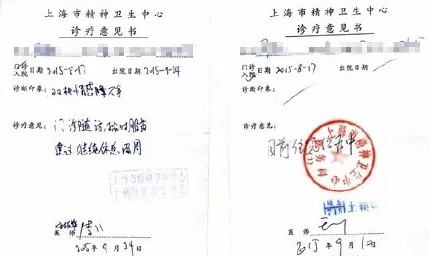 上海市精神卫生中心
诊疗意见书
门诊
入院 日期 2015-8-17 出院日期 2015-9-24
诊断印象：双相情感障碍
诊疗意见：
门诊随访，按时服药
建议继续休息两周
医师
2015年9月24日
上海市精神卫生中心
诊疗意见书
门诊
入院 日期 2015-8-17 出院日期
诊断印象：
诊疗意见：
目前住院治疗中
上海市精神卫生中心
医务科
医师
2015年9月1日